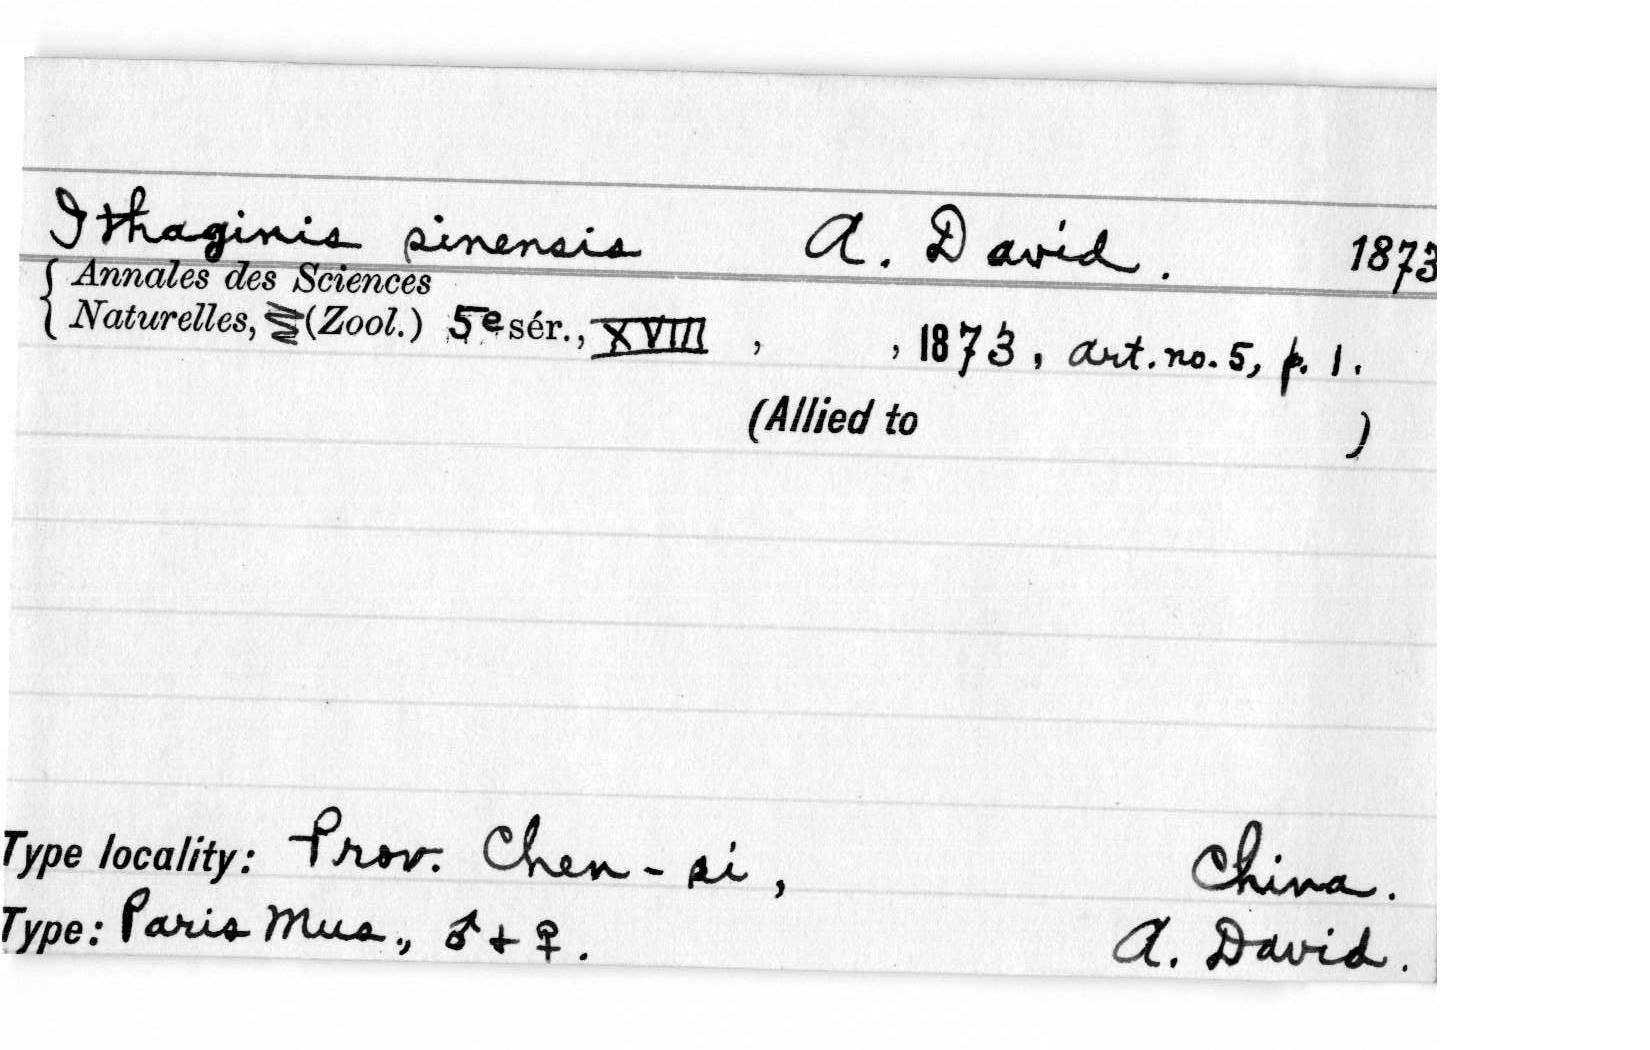 Ithaginis sinensis A. David. 1873
Annales des Sciences
Naturelles, (Zool.) 5e sér., XVIII , , 1873, art. no. 5, p. 1.
(Allied to )
Type locality: Prov. Chen-si, China.
Type: Paris Mus., ♂ + ♀. A. David.